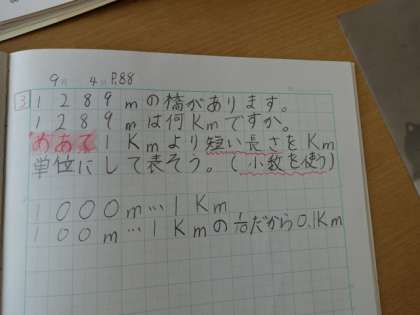 9月 4日 P.88
3 1289mの橋があります。
1289mは何Kmですか。
めあて 1Kmより短い長さをKm
単位にして表そう。(小数を使う)
1000m…1Km
100m…1Kmの1/10だから0.1Km